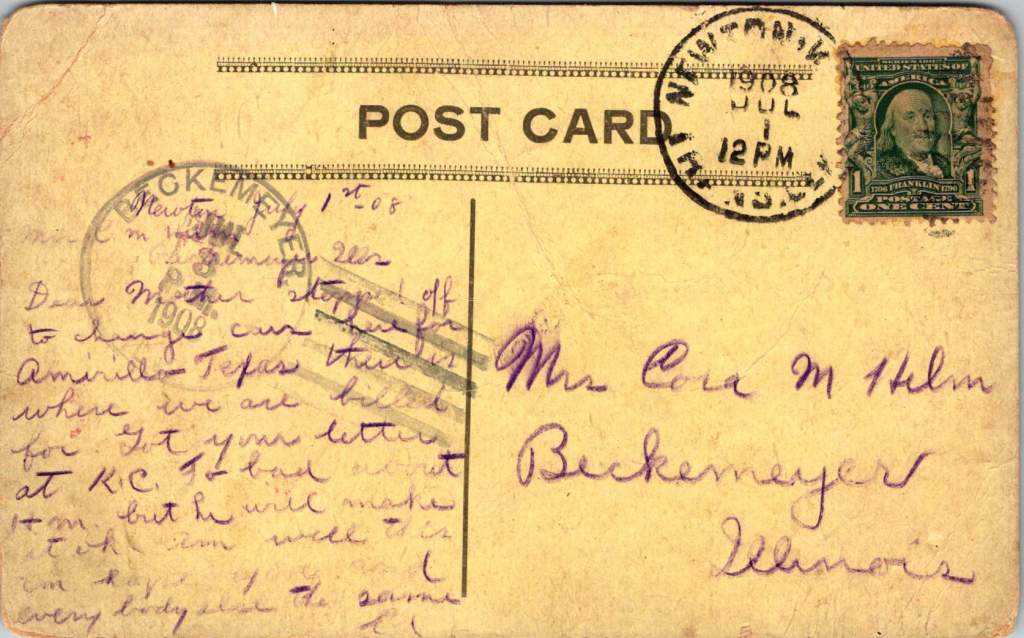 POST CARD
NEWTON
1908
JUL
1
12 PM
SERIES 1902
UNITED STATES OF
AMERICA
1 1
1706 FRANKLIN 1790
POSTAGE
ONE CENT
BECKEMEYER
3
P.M.
1908
Newton July 1st-08
C M Helm
Ills
Dear Mother stopped off
to change cars here for
Amirilla Texas there is
where we are billed
for. Got your letter
at K.C. To bad about
H.M. but he will make
it ok. am well this
am hope you and
every body else the same
Mrs Cora M Helm
Beckemeyer
Illinois